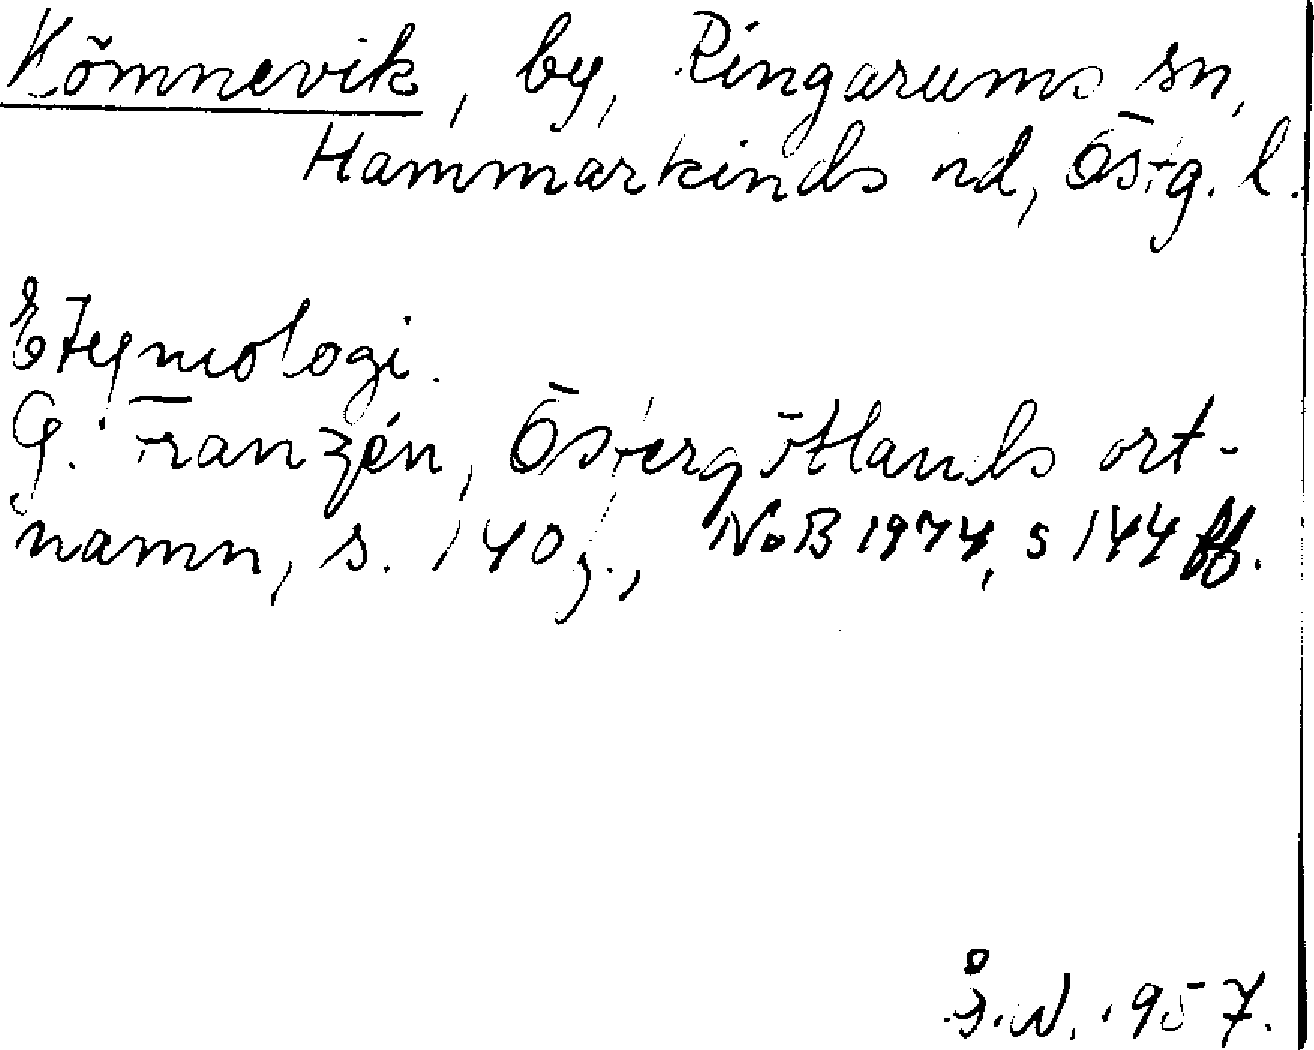 Kömnevik, by, Ringarums sn,
Hammarkinds hd, Östg. l.
Etymologi.
G. Franzén, Östergötlands ort-
namn, s. 140 f., NoB 1974, s 144 ff.
Å.N. 1957.